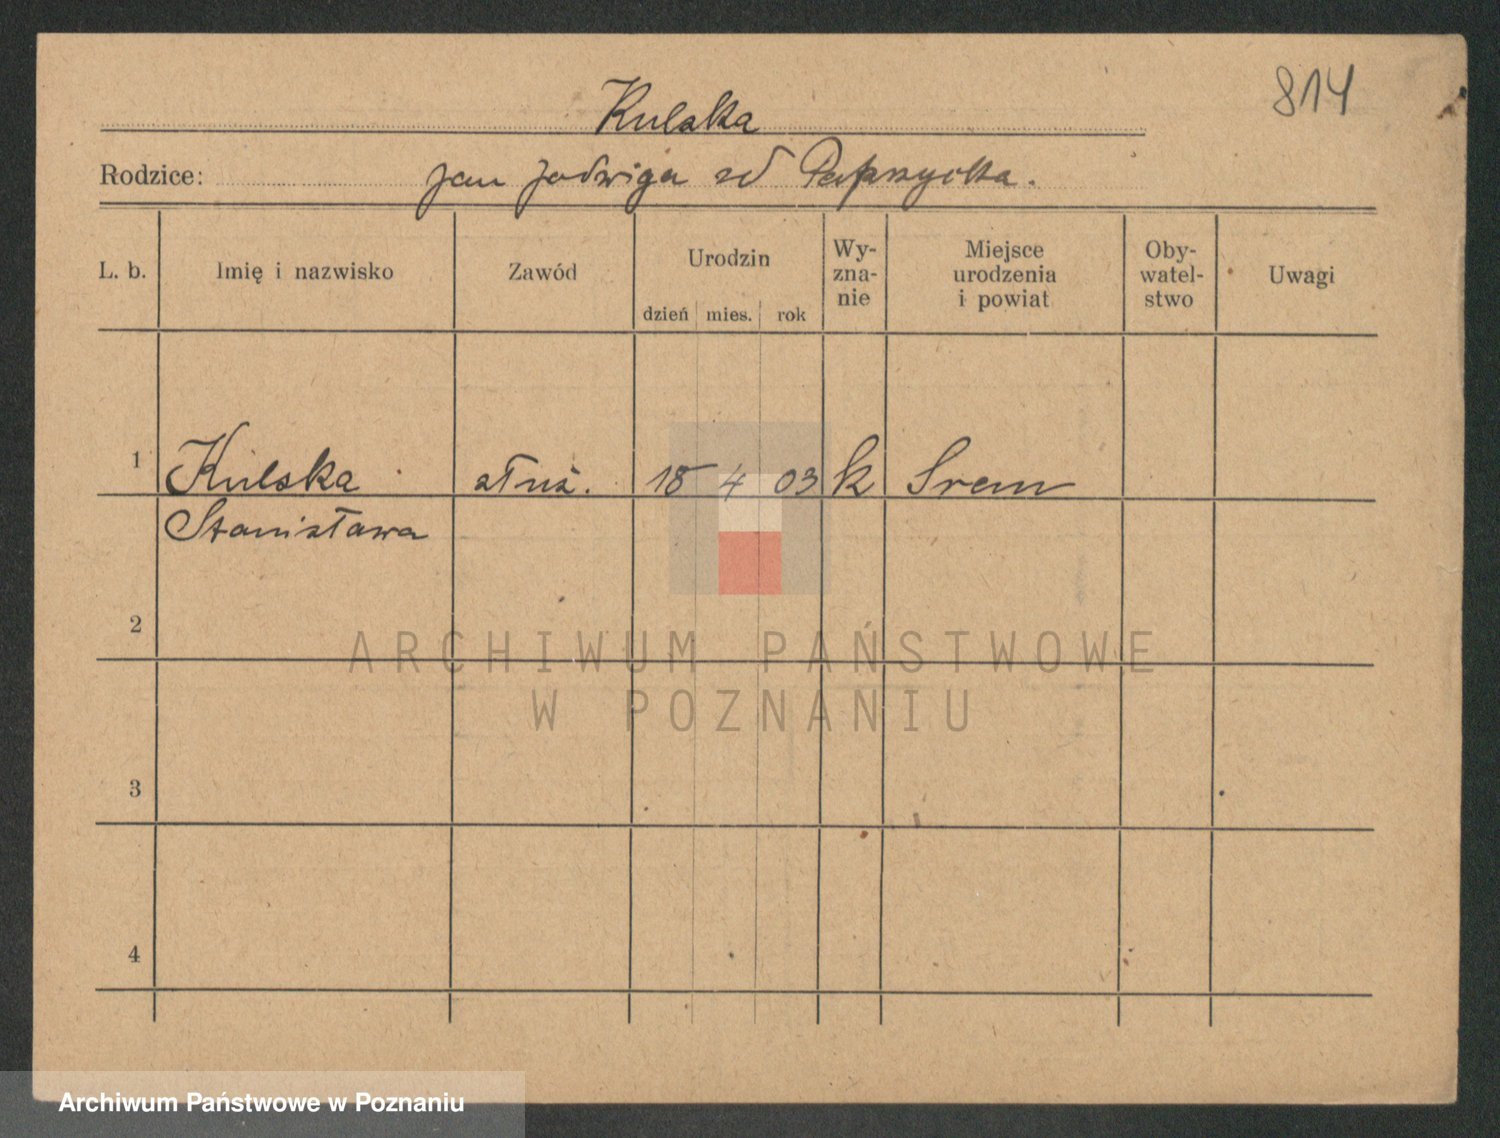 814
Kulska
Rodzice: Jan Jadwiga zd Paprzycka.
L. b. Imię i nazwisko Zawód Urodzin dzień mies. rok Wy-zna-nie Miejsce urodzenia i powiat Oby-watel-stwo Uwagi
1 Kulska służ. 18 4 03 k Srem
Stanisława
2
ARCHIWUM PAŃSTWOWE
W POZNANIU
3
4
Archiwum Państwowe w Poznaniu